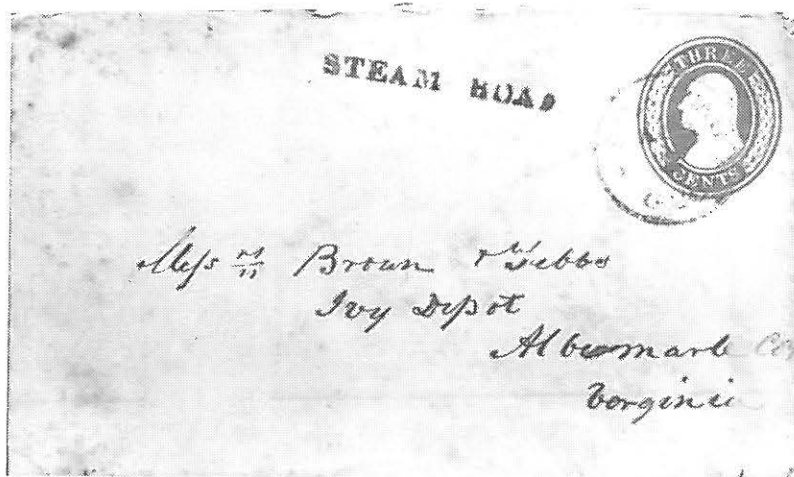 STEAM ROAD
THREE
CENTS
Mess rs Brown & Tebbs
Ivy Depot
Albermarle Co
Vorginia